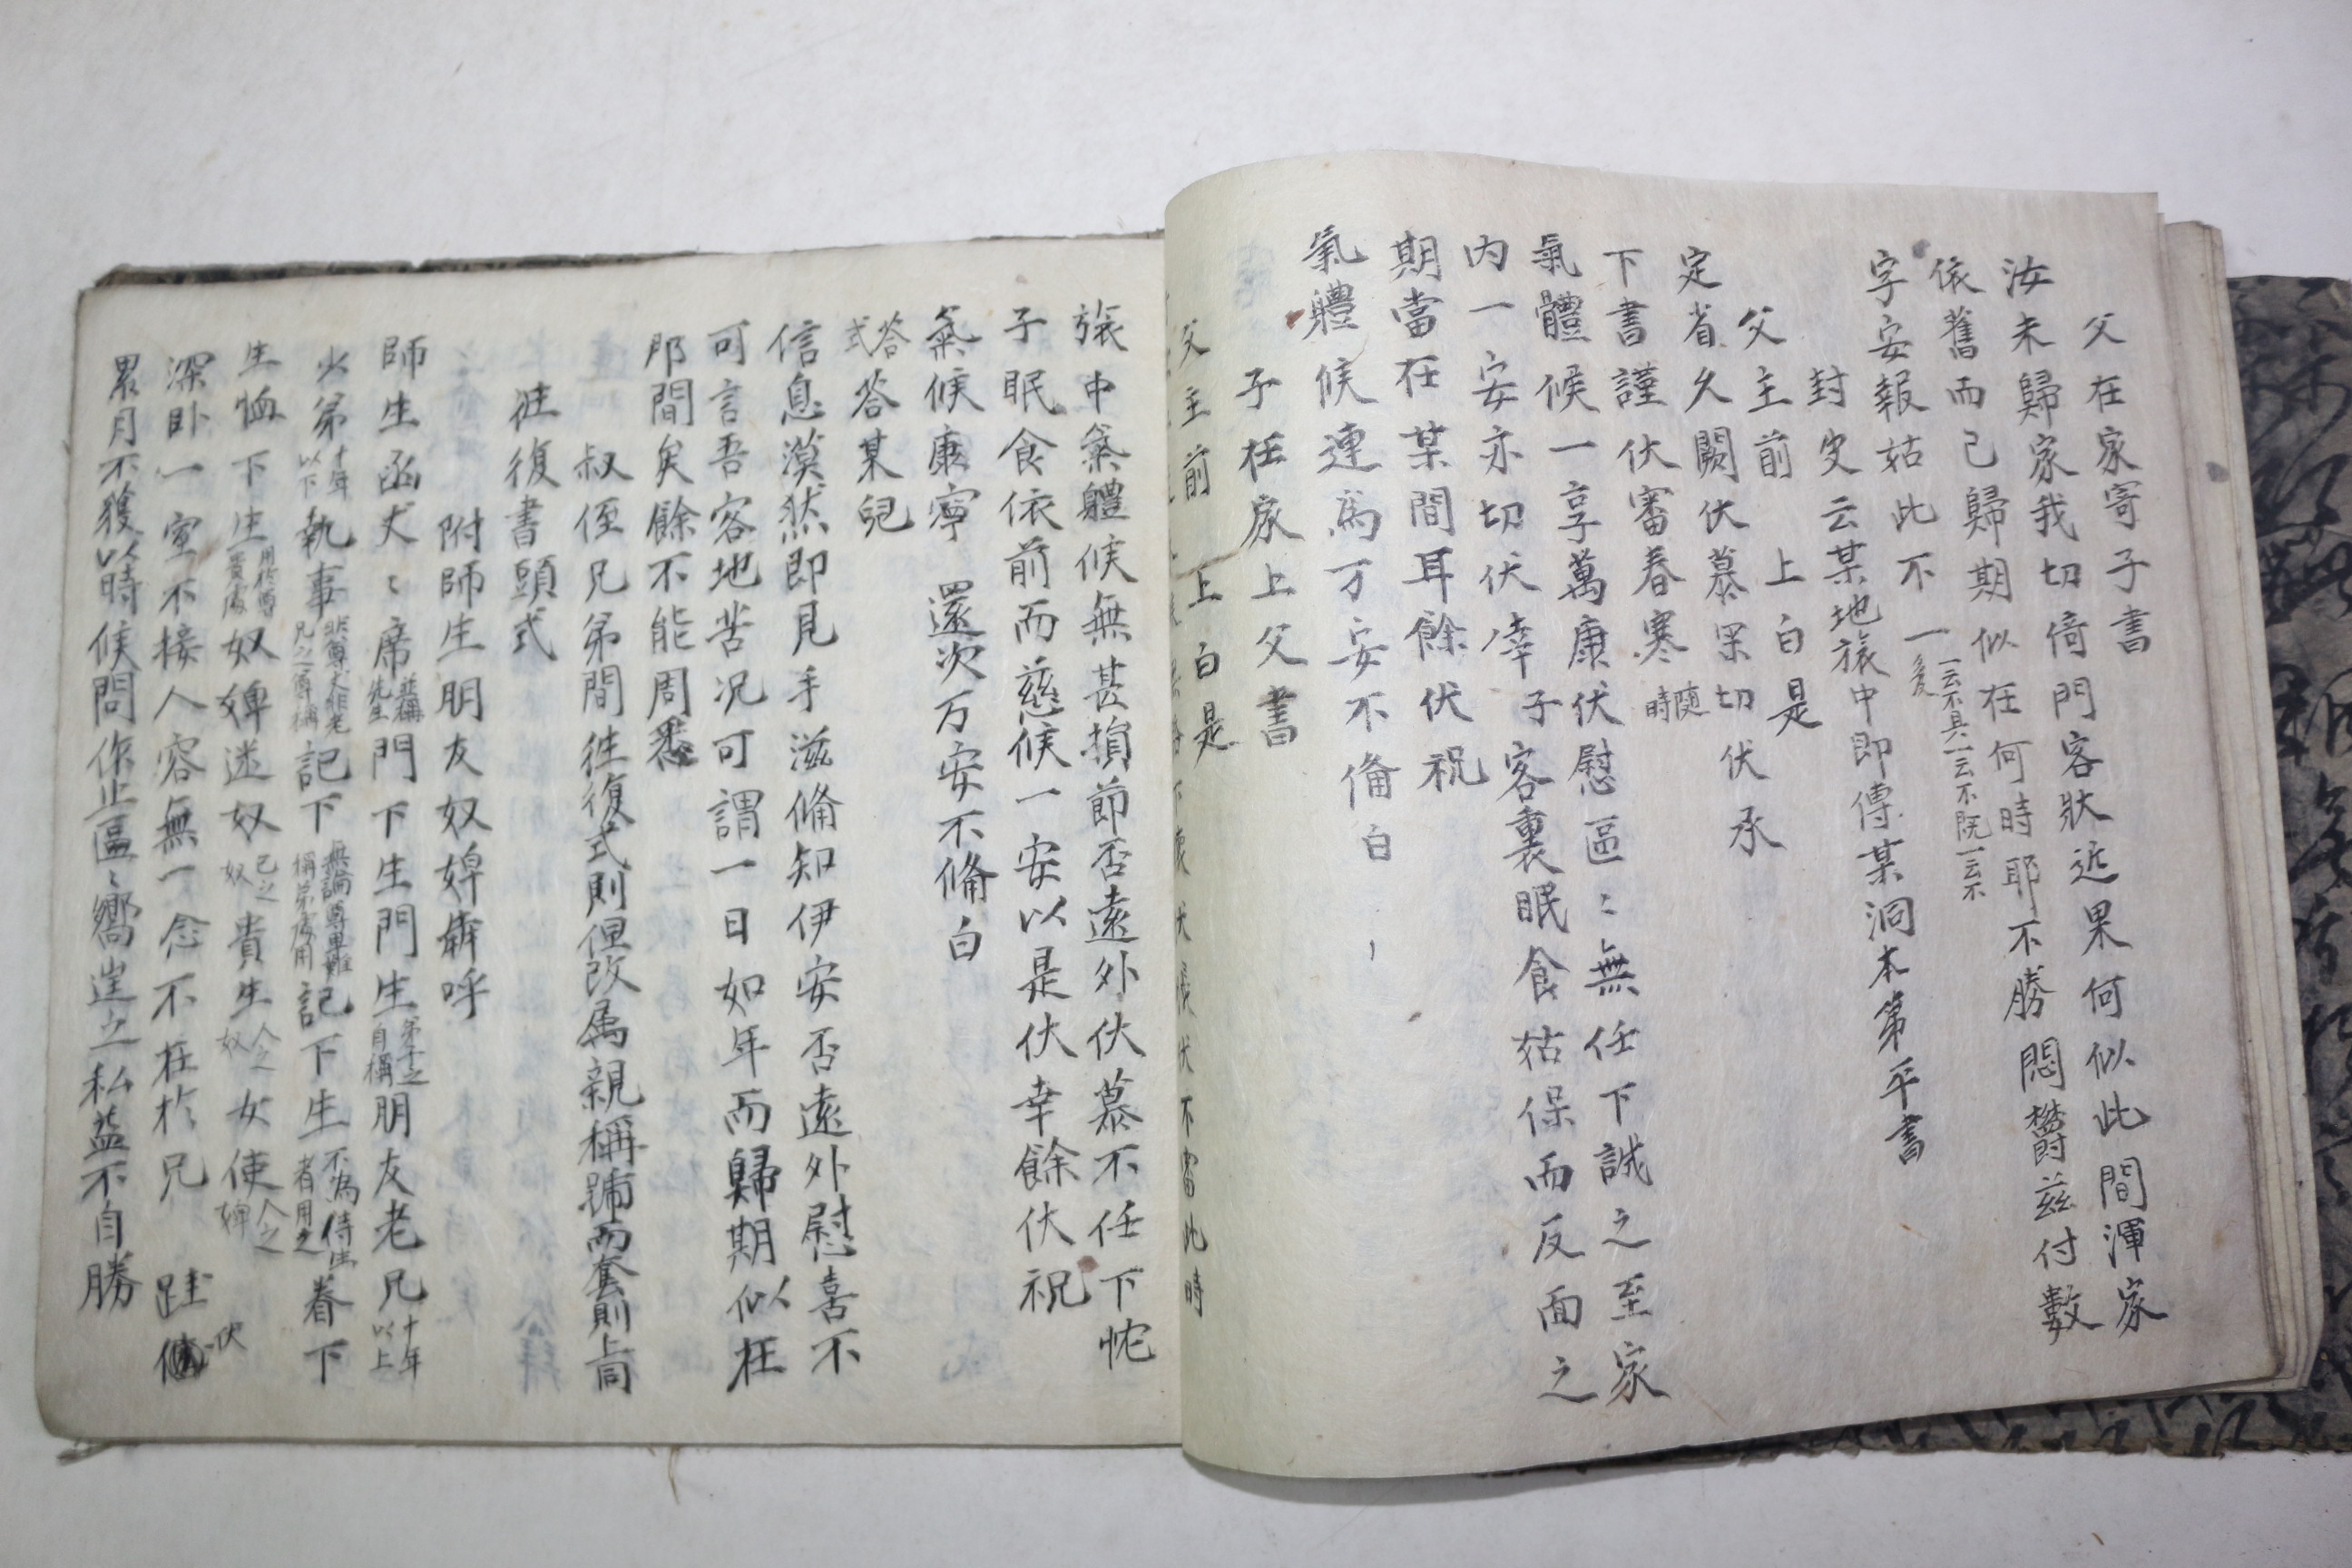 父在家寄子書
汝未歸家我切倚門客狀近果何似此間渾家
依舊而已歸期似在何時耶不勝悶欝茲付數
字安報姑此不一 一云不具一云不 一云不
封皮云某地旅中即傳某洞本第平書
父主前 上白是
定省久闕伏慕罙切伏承
下書謹伏審春寒 隨時
氣體候一享萬康伏慰區〻無任下誠之至家
內一安亦切伏幸子客裏眠食姑保而反面之
期當在某間耳餘伏祝
氣體候連爲万安不備白
子在家上父書
父主前 上白是
張中氣體候無甚損節否遠外伏慕不任下忱
子眠食依前而慈候一安以是伏幸餘伏祝
氣候康寧 還次万安不備白
答式 答某兒
信息漠然即見手滋備知伊安否遠外慰喜不
可言吾客地苦況可謂一日如年而歸期似在
那間矣餘不能周悉
叔侄兄弟間往復式則但改属親稱號而套則上同
往復書頭式
附師生朋友奴婢称呼
師生函丈〻席 並稱先生 門下生門生 弟子之自稱 朋友老兄 十年以上
少弟 十年以下 執事 非尊丈非老兄之尊稱 記下 無論尊卑難稱弟處用 記下生 不為侍生者用之 眷下
生恤下生 奴婢迷奴 己之奴 貴生 人之奴 女使 人之婢
深卧一室不接人客無一念不在於兄 伏
累月不獲以時候問你止區〻嚮 之私益不自勝